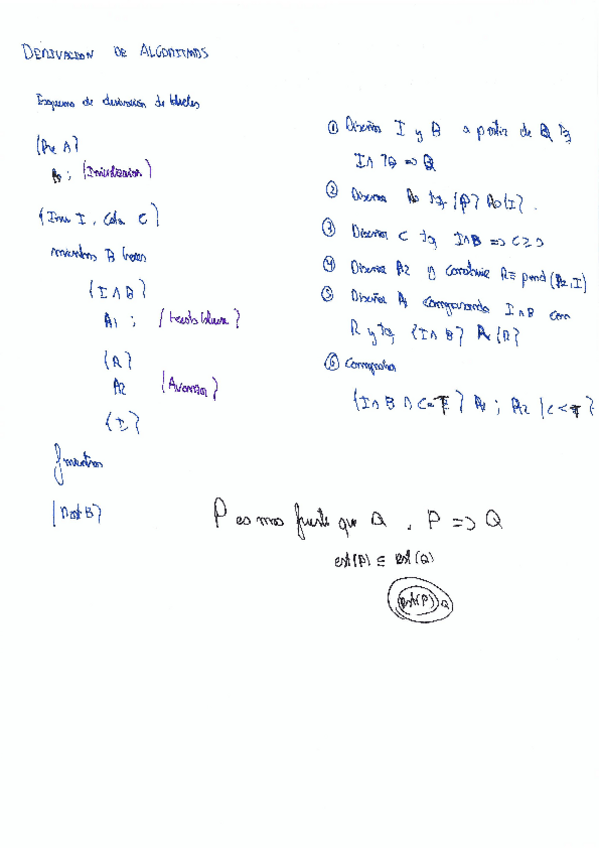 DERIVACION DE ALGORITMOS
Esquema de derivación de bucles
{Pre A}
A0 ; {Inicialización}
{Inv I, Cota C}
mientras B hacer
{I ∧ B}
A1 ; {restablecer}
{R}
A2 {Avanzar}
{I}
fmientras
{Post B}
① Diseñar I y B a partir de Q tq
I ∧ ¬B => Q
② Diseñar A0 tq {P} A0 {I}.
③ Diseñar C tq I∧B => C≥0
④ Diseñar A2 y construir R≡ pmd(A2, I)
⑤ Diseñar A1 comparando I∧B con
R y tq {I∧B} A1 {R}
⑥ Comprobar
{I∧B∧C=T} A1 ; A2 {C<T}
P es mas fuerte que Q , P => Q
est(P) ⊆ est(Q)
est(P) Q